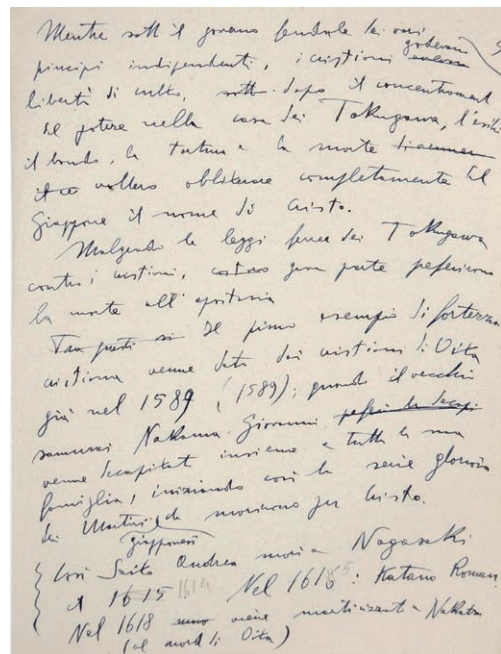 Mentre sott il governo feudale dei vari
principi indipendenti, i cristiani godevano
libertà di culto, sott dopo il concentrament
del potere nella casa dei Tokugawa, l'esilio
il bando, la tortura e la morte
vollero obliterare completamente del
Giappone il nome di Cristo.
Malgrado le leggi feroci dei Tokugawa
contro i cristiani, costoro gran parte preferirono
la morte all'apostasia
Tra questi si Il primo esempio di fortezza
cristiana venne dato dai cristiani di Oita
già nel 1589 (1589); quando il vecchio
samurai Nakama Giovanni
venne decapitat insieme a tutta la sua
famiglia, iniziando così la serie gloriosa
dei Martiri che morirono per Cristo.
giapponesi
Così Saito Andrea morì a Nagasaki
il 1615 1614 Nel 1618 5: Katano Roman
Nel 1618 viene martirizzat a Nakatsu
(al nord di Oita)